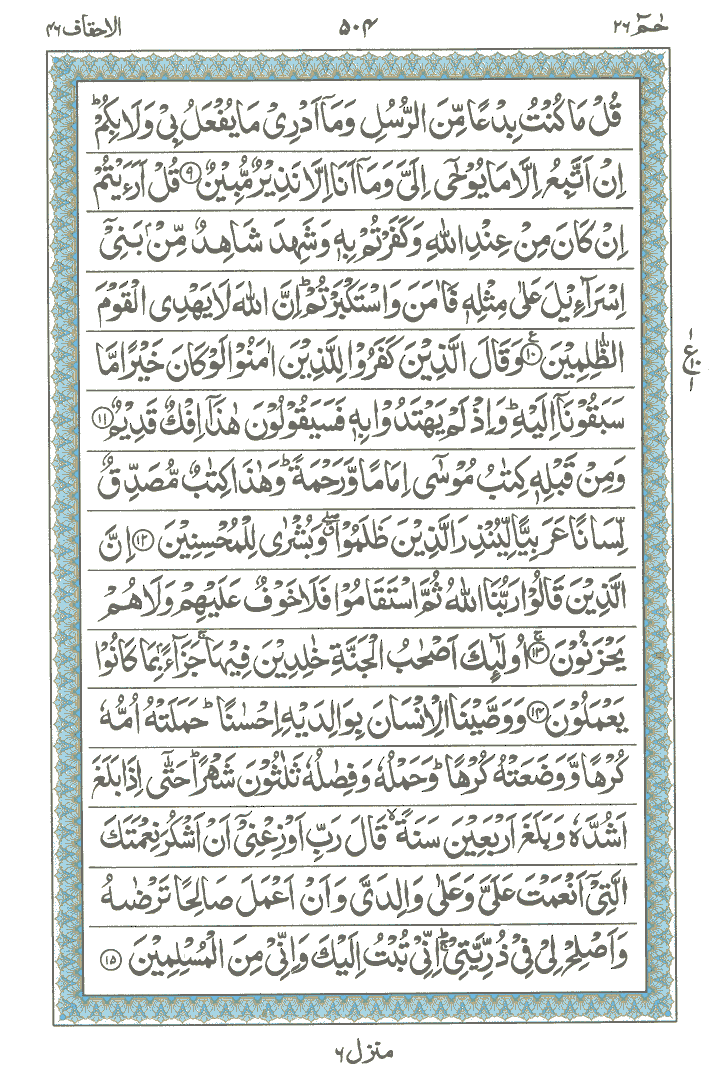 حٰمٓ ٢٦ ۵۰۴ الاحقاف ٤٦
قُلْ مَا كُنْتُ بِدْعًا مِّنَ الرُّسُلِ وَمَاۤ اَدْرِیْ مَا یُفْعَلُ بِیْ وَلَا بِكُمْؕ
اِنْ اَتَّبِعُ اِلَّا مَا یُوْحٰۤی اِلَیَّ وَمَاۤ اَنَا اِلَّا نَذِیْرٌ مُّبِیْنٌ ﴿٩﴾ قُلْ اَرَءَیْتُمْ
اِنْ كَانَ مِنْ عِنْدِ اللّٰهِ وَكَفَرْتُمْ بِهٖ وَشَهِدَ شَاهِدٌ مِّنْۢ بَنِیْۤ
اِسْرَآءِیْلَ عَلٰی مِثْلِهٖ فَاٰمَنَ وَاسْتَكْبَرْتُمْؕ اِنَّ اللّٰهَ لَا یَهْدِی الْقَوْمَ
الظّٰلِمِیْنَ ﴿١٠﴾ۧ وَقَالَ الَّذِیْنَ كَفَرُوْا لِلَّذِیْنَ اٰمَنُوْا لَوْ كَانَ خَیْرًا مَّا
سَبَقُوْنَاۤ اِلَیْهِؕ وَاِذْ لَمْ یَهْتَدُوْا بِهٖ فَسَیَقُوْلُوْنَ هٰذَاۤ اِفْكٌ قَدِیْمٌ ﴿١١﴾
وَمِنْ قَبْلِهٖ كِتٰبُ مُوْسٰۤی اِمَامًا وَّرَحْمَةًؕ وَهٰذَا كِتٰبٌ مُّصَدِّقٌ
لِّسَانًا عَرَبِیًّا لِّیُنْذِرَ الَّذِیْنَ ظَلَمُوْاۖۗ وَبُشْرٰی لِلْمُحْسِنِیْنَ ﴿١٢﴾ اِنَّ
الَّذِیْنَ قَالُوْا رَبُّنَا اللّٰهُ ثُمَّ اسْتَقَامُوْا فَلَا خَوْفٌ عَلَیْهِمْ وَلَا هُمْ
یَحْزَنُوْنَ ﴿١٣﴾ۚ اُولٰٓئِكَ اَصْحٰبُ الْجَنَّةِ خٰلِدِیْنَ فِیْهَاۚ جَزَآءًۢ بِمَا كَانُوْا
یَعْمَلُوْنَ ﴿١٤﴾ وَوَصَّیْنَا الْاِنْسَانَ بِوَالِدَیْهِ اِحْسٰنًاؕ حَمَلَتْهُ اُمُّهٗ
كُرْهًا وَّوَضَعَتْهُ كُرْهًاؕ وَحَمْلُهٗ وَفِصٰلُهٗ ثَلٰثُوْنَ شَهْرًاؕ حَتّٰۤی اِذَا بَلَغَ
اَشُدَّهٗ وَبَلَغَ اَرْبَعِیْنَ سَنَةًۙ قَالَ رَبِّ اَوْزِعْنِیْۤ اَنْ اَشْكُرَ نِعْمَتَكَ
الَّتِیْۤ اَنْعَمْتَ عَلَیَّ وَعَلٰی وَالِدَیَّ وَاَنْ اَعْمَلَ صَالِحًا تَرْضٰىهُ
وَاَصْلِحْ لِیْ فِیْ ذُرِّیَّتِیْؕۚ اِنِّیْ تُبْتُ اِلَیْكَ وَاِنِّیْ مِنَ الْمُسْلِمِیْنَ ﴿١٥﴾
١
ع ١٠
١
منزل ٦